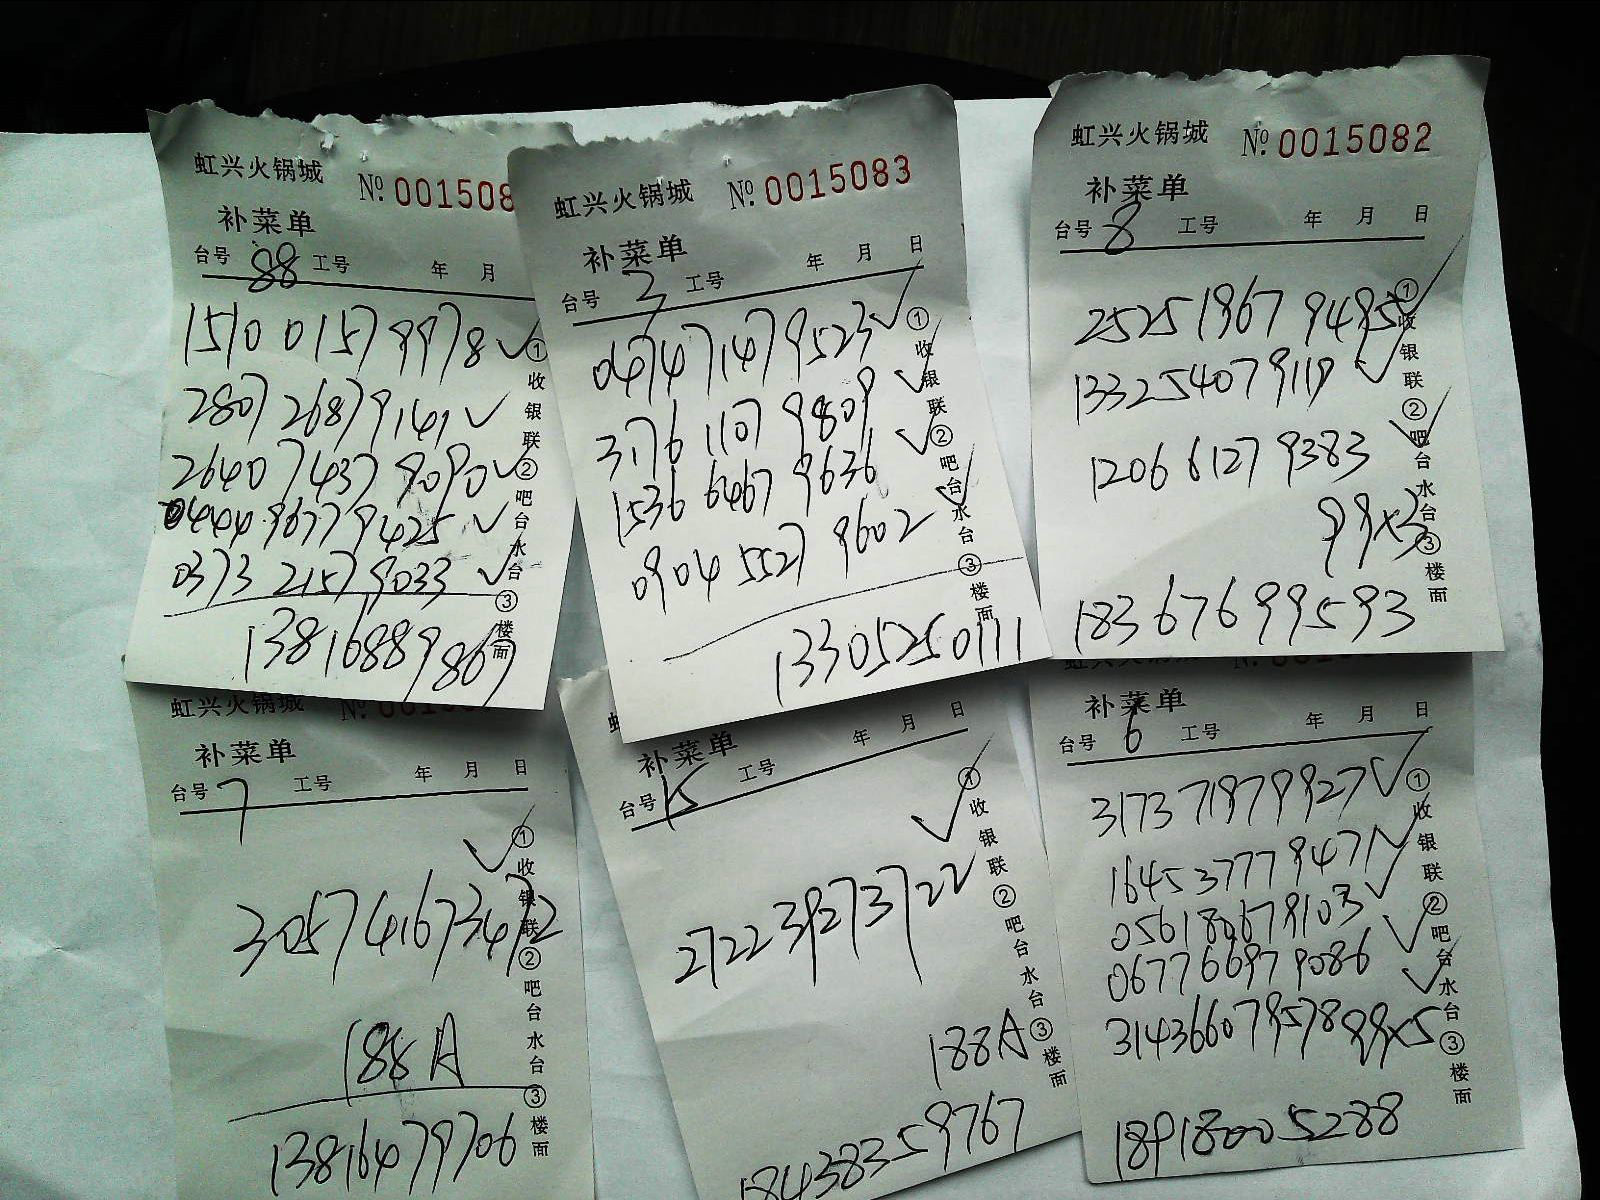 虹兴火锅城 №001508
补菜单
台号 88 工号 年 月
1510 0157 9978
2807 2687 9141
2640 7437 9090
0444 9677 9425
0373 2157 9033
13816889867
①收银联②吧台水台③楼面
虹兴火锅城 №0015083
补菜单
台号 3 工号 年 月 日
0474 7147 9523
3176 1107 9809
1536 6467 9636
0904 5527 9602
13305250111
①收银联②吧台水台③楼面
虹兴火锅城 №0015082
补菜单
台号 8 工号 年 月 日
2525 1967 9495
1332 5407 9119
1206 6127 9383
99×3
18367699593
①收银联②吧台水台③楼面
虹兴火锅城 №
补菜单
台号 7 工号 年 月 日
305741673472
188A
13816479706
①收银联②吧台水台③楼面
补菜单
台号 15 工号 年 月 日
272239273722
188A
18438359767
①收银联②吧台水台③楼面
补菜单
台号 6 工号 年 月 日
3173 7197 9927
1645 3777 9471
0561 8067 9103
0677 6697 9086
3143 6607 9578 99×5
18918005288
①收银联②吧台水台③楼面